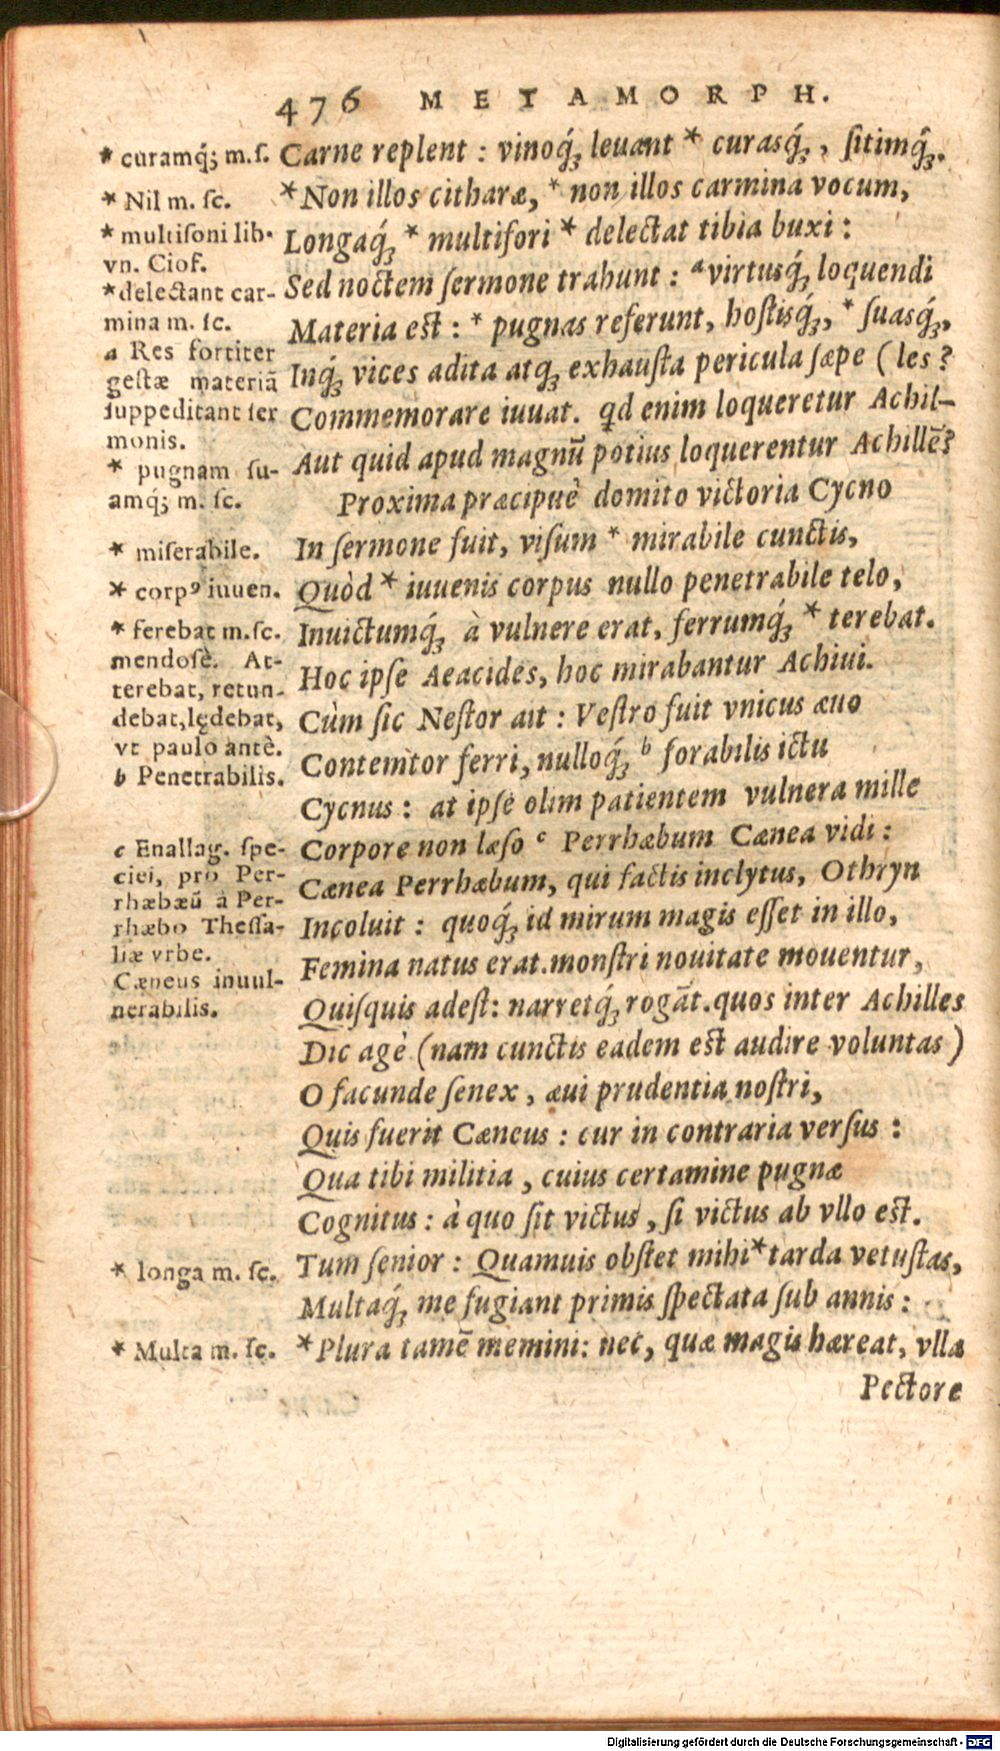 476 METAMORPH.
* curamq́; m. ſ.
* Nil m. ſc.
* multiſoni lib.
vn. Ciof.
* delectant car-
mina m. ſc.
a Res fortiter
geſtæ materiã
ſuppeditant ſer
monis.
* pugnam ſu-
amq́; m. ſc.
* miſerabile.
* corpꝰ iuuen.
* ferebat m. ſc.
mendoſè. At-
terebat, retun-
debat, lędebat,
vt paulo antè.
b Penetrabilis.
c Enallag. ſpe-
ciei, pro Per-
rhæbæũ à Per-
rhæbo Theſſa-
liæ vrbe.
Cæneus inuul-
nerabilis.
* longa m. ſc.
* Multa m. ſc.
Carne replent : vinoq́; leuant * curasq́;, ſitimq́;.
* Non illos citharæ, * non illos carmina vocum,
Longaq́; * multifori * delectat tibia buxi :
Sed noctem ſermone trahunt : a virtusq́; loquendi
Materia eſt : * pugnas referunt, hoſtisq́;, * ſuasq́;,
Inq́; vices adita atq́; exhauſta pericula ſæpe (les?
Commemorare iuuat. qd enim loqueretur Achil-
Aut quid apud magnũ potius loquerentur Achillẽ?
Proxima præcipuè domito victoria Cycno
In ſermone fuit, viſum * mirabile cunctis,
Quòd * iuuenis corpus nullo penetrabile telo,
Inuictumq́; à vulnere erat, ferrumq́; * terebat.
Hoc ipſe Aeacides, hoc mirabantur Achiui.
Cùm ſic Neſtor ait : Veſtro fuit vnicus æuo
Contemtor ferri, nulloq́; b forabilis ictu
Cycnus : at ipſe olim patientem vulnera mille
Corpore non læſo c Perrhæbum Cænea vidi :
Cænea Perrhæbum, qui factis inclytus, Othryn
Incoluit : quoq́; id mirum magis eſſet in illo,
Femina natus erat. monſtri nouitate mouentur,
Quiſquis adeſt: narretq́; rogãt. quos inter Achilles
Dic agè (nam cunctis eadem eſt audire voluntas)
O facunde ſenex, æui prudentia noſtri,
Quis fuerit Cæneus : cur in contraria verſus :
Qua tibi militia, cuius certamine pugnæ
Cognitus : à quo ſit victus, ſi victus ab vllo eſt.
Tum ſenior : Quamuis obſtet mihi * tarda vetuſtas,
Multaq́; me fugiant primis ſpectata ſub annis :
* Plura tamẽ memini: nec, quæ magis hæreat, vlla
Pectore
Digitalisierung gefördert durch die Deutsche Forschungsgemeinschaft - DFG